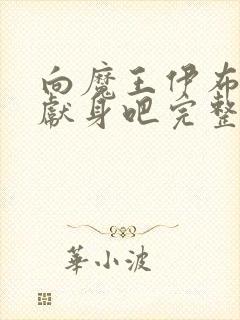 向魔王伊布
獻身吧完整
華小波